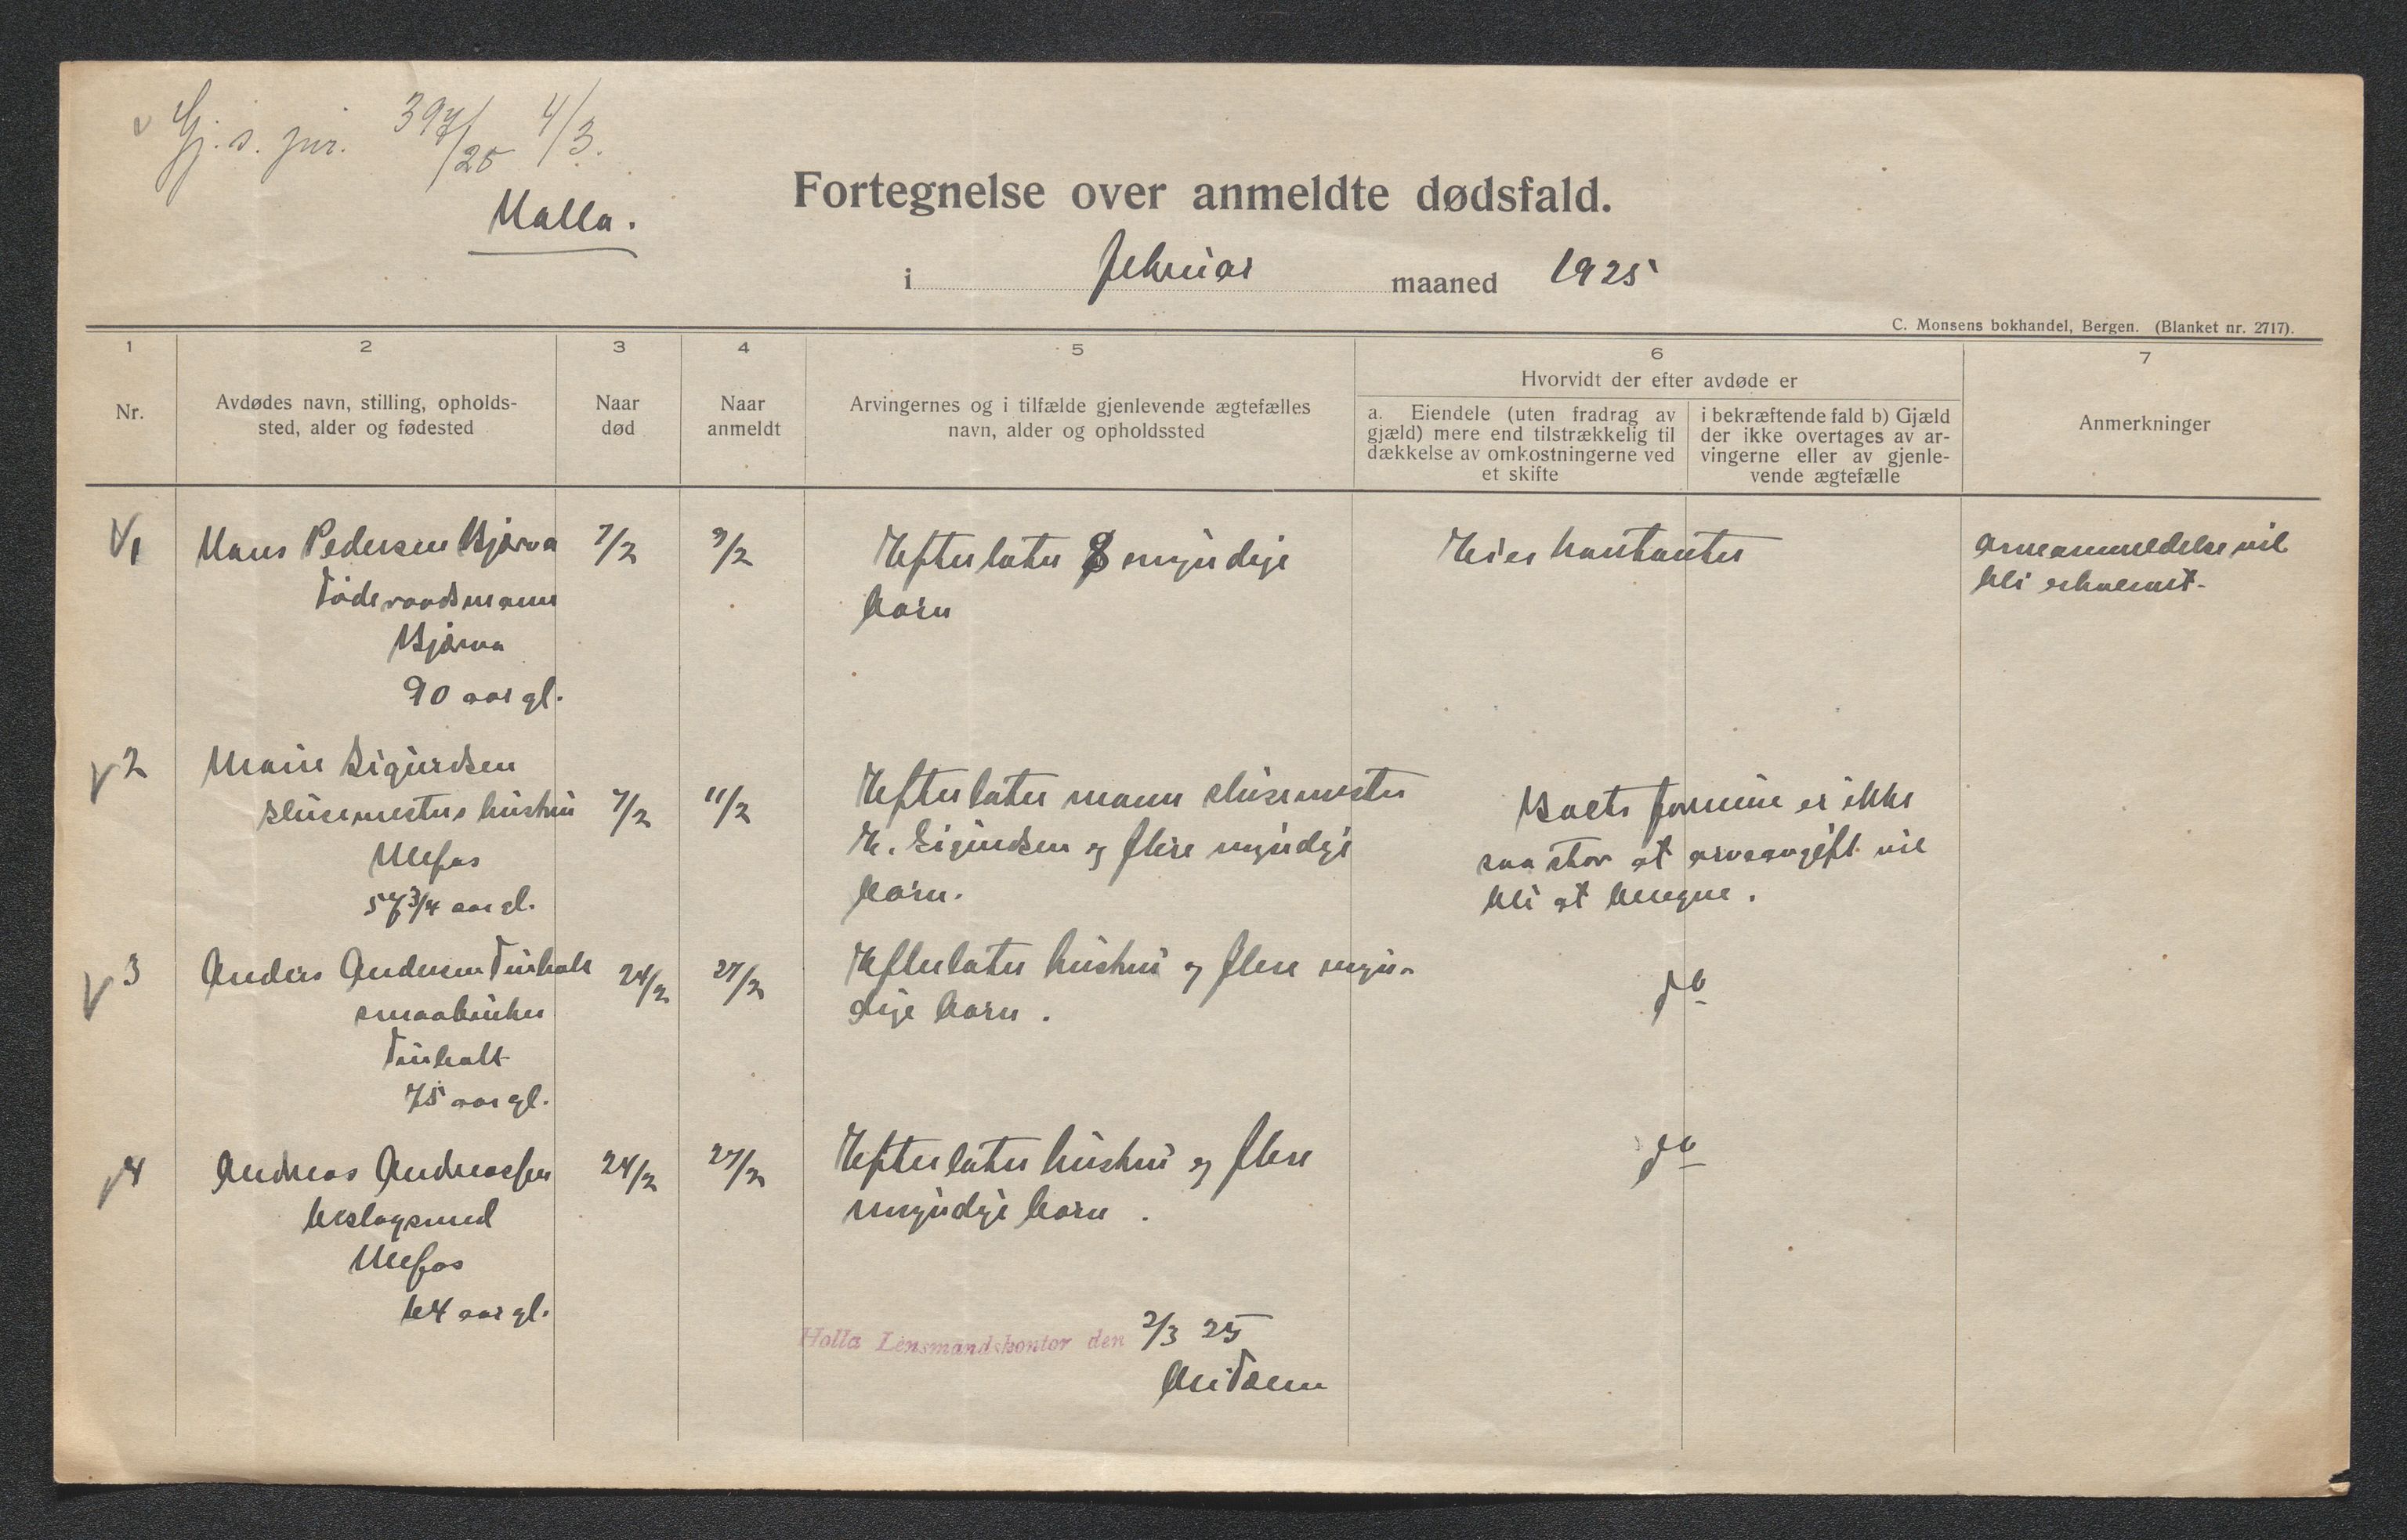 Gj. s. jnr. 397/25 4/3.
Holla.
Fortegnelse over anmeldte dødsfald.
i februar maaned 1925
C. Monsens bokhandel, Bergen. (Blanket nr. 2717).
1 2 3 4 5 6 7
Nr.
Avdødes navn, stilling, opholds-
sted, alder og fødested
Naar
død
Naar
anmeldt
Arvingernes og i tilfælde gjenlevende ægtefælles
navn, alder og opholdssted
Hvorvidt der efter avdøde er
a. Eiendele (uten fradrag av
gjæld) mere end tilstrækkelig til
dækkelse av omkostningerne ved
et skifte
i bekræftende fald b) Gjæld
der ikke overtages av ar-
vingerne eller av gjenle-
vende ægtefælle
Anmerkninger
1 Hans Pedersen Bjerva 7/2 9/2 Efterlater 8 myndige Eier kontanter arveanmeldelse vil
føderaadsmann børn bli
Bjerva
90 aar gl.
2 Marie Sigurdsen
slusemesters hustru 7/2 11/2 Efterlater mann slusemester Boets formue er ikke
Ulefos E. Sigurdsen og flere myndige saa stor at arveavgift vil
57 3/4 aar gl. børn. bli at beregne.
3 Anders Andersen Tinholt 24/2 27/2 Efterlater hustru og flere myn-
smaabruker dige børn. do
Tinholt
75 aar gl.
4 Andreas Andreassen 24/2 27/2 Efterlater hustru og flere do
beslagsmed myndige børn.
Ulefos
64 aar gl.
Holla Lensmandskontor den 2/3 25